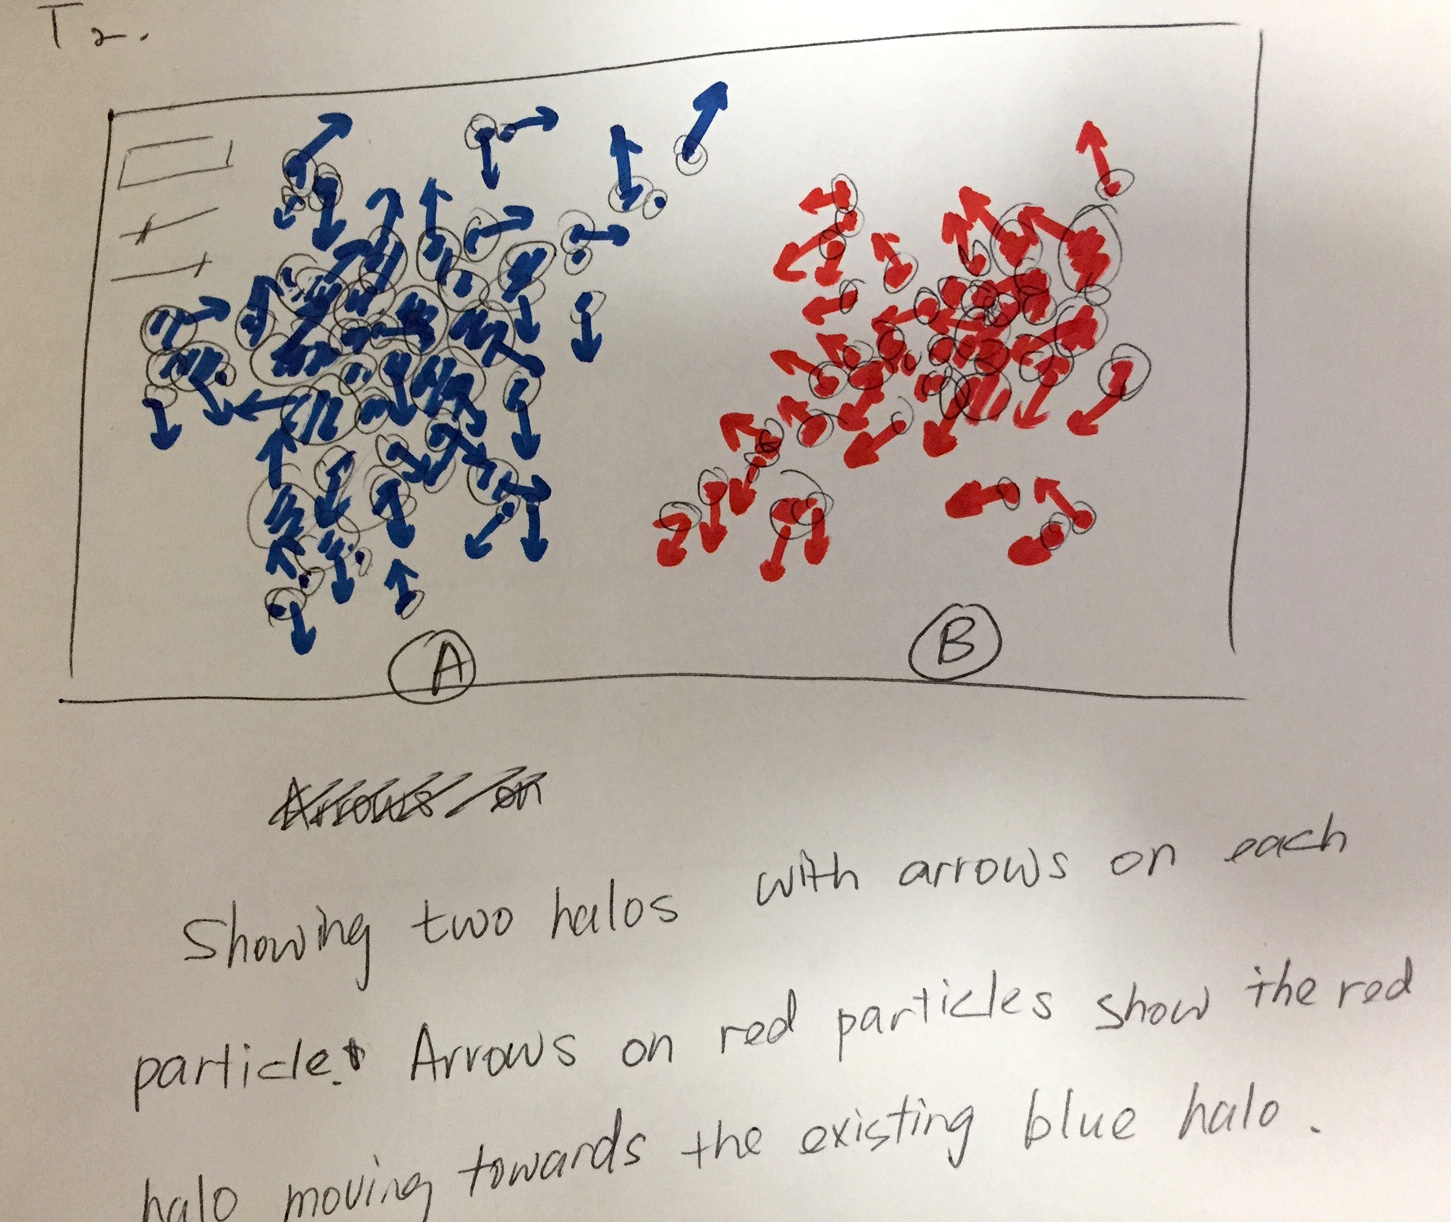 T2.
A
B
Arrows on
Showing two halos with arrows on each
particle. Arrows on red particles show the red
halo moving towards the existing blue halo.